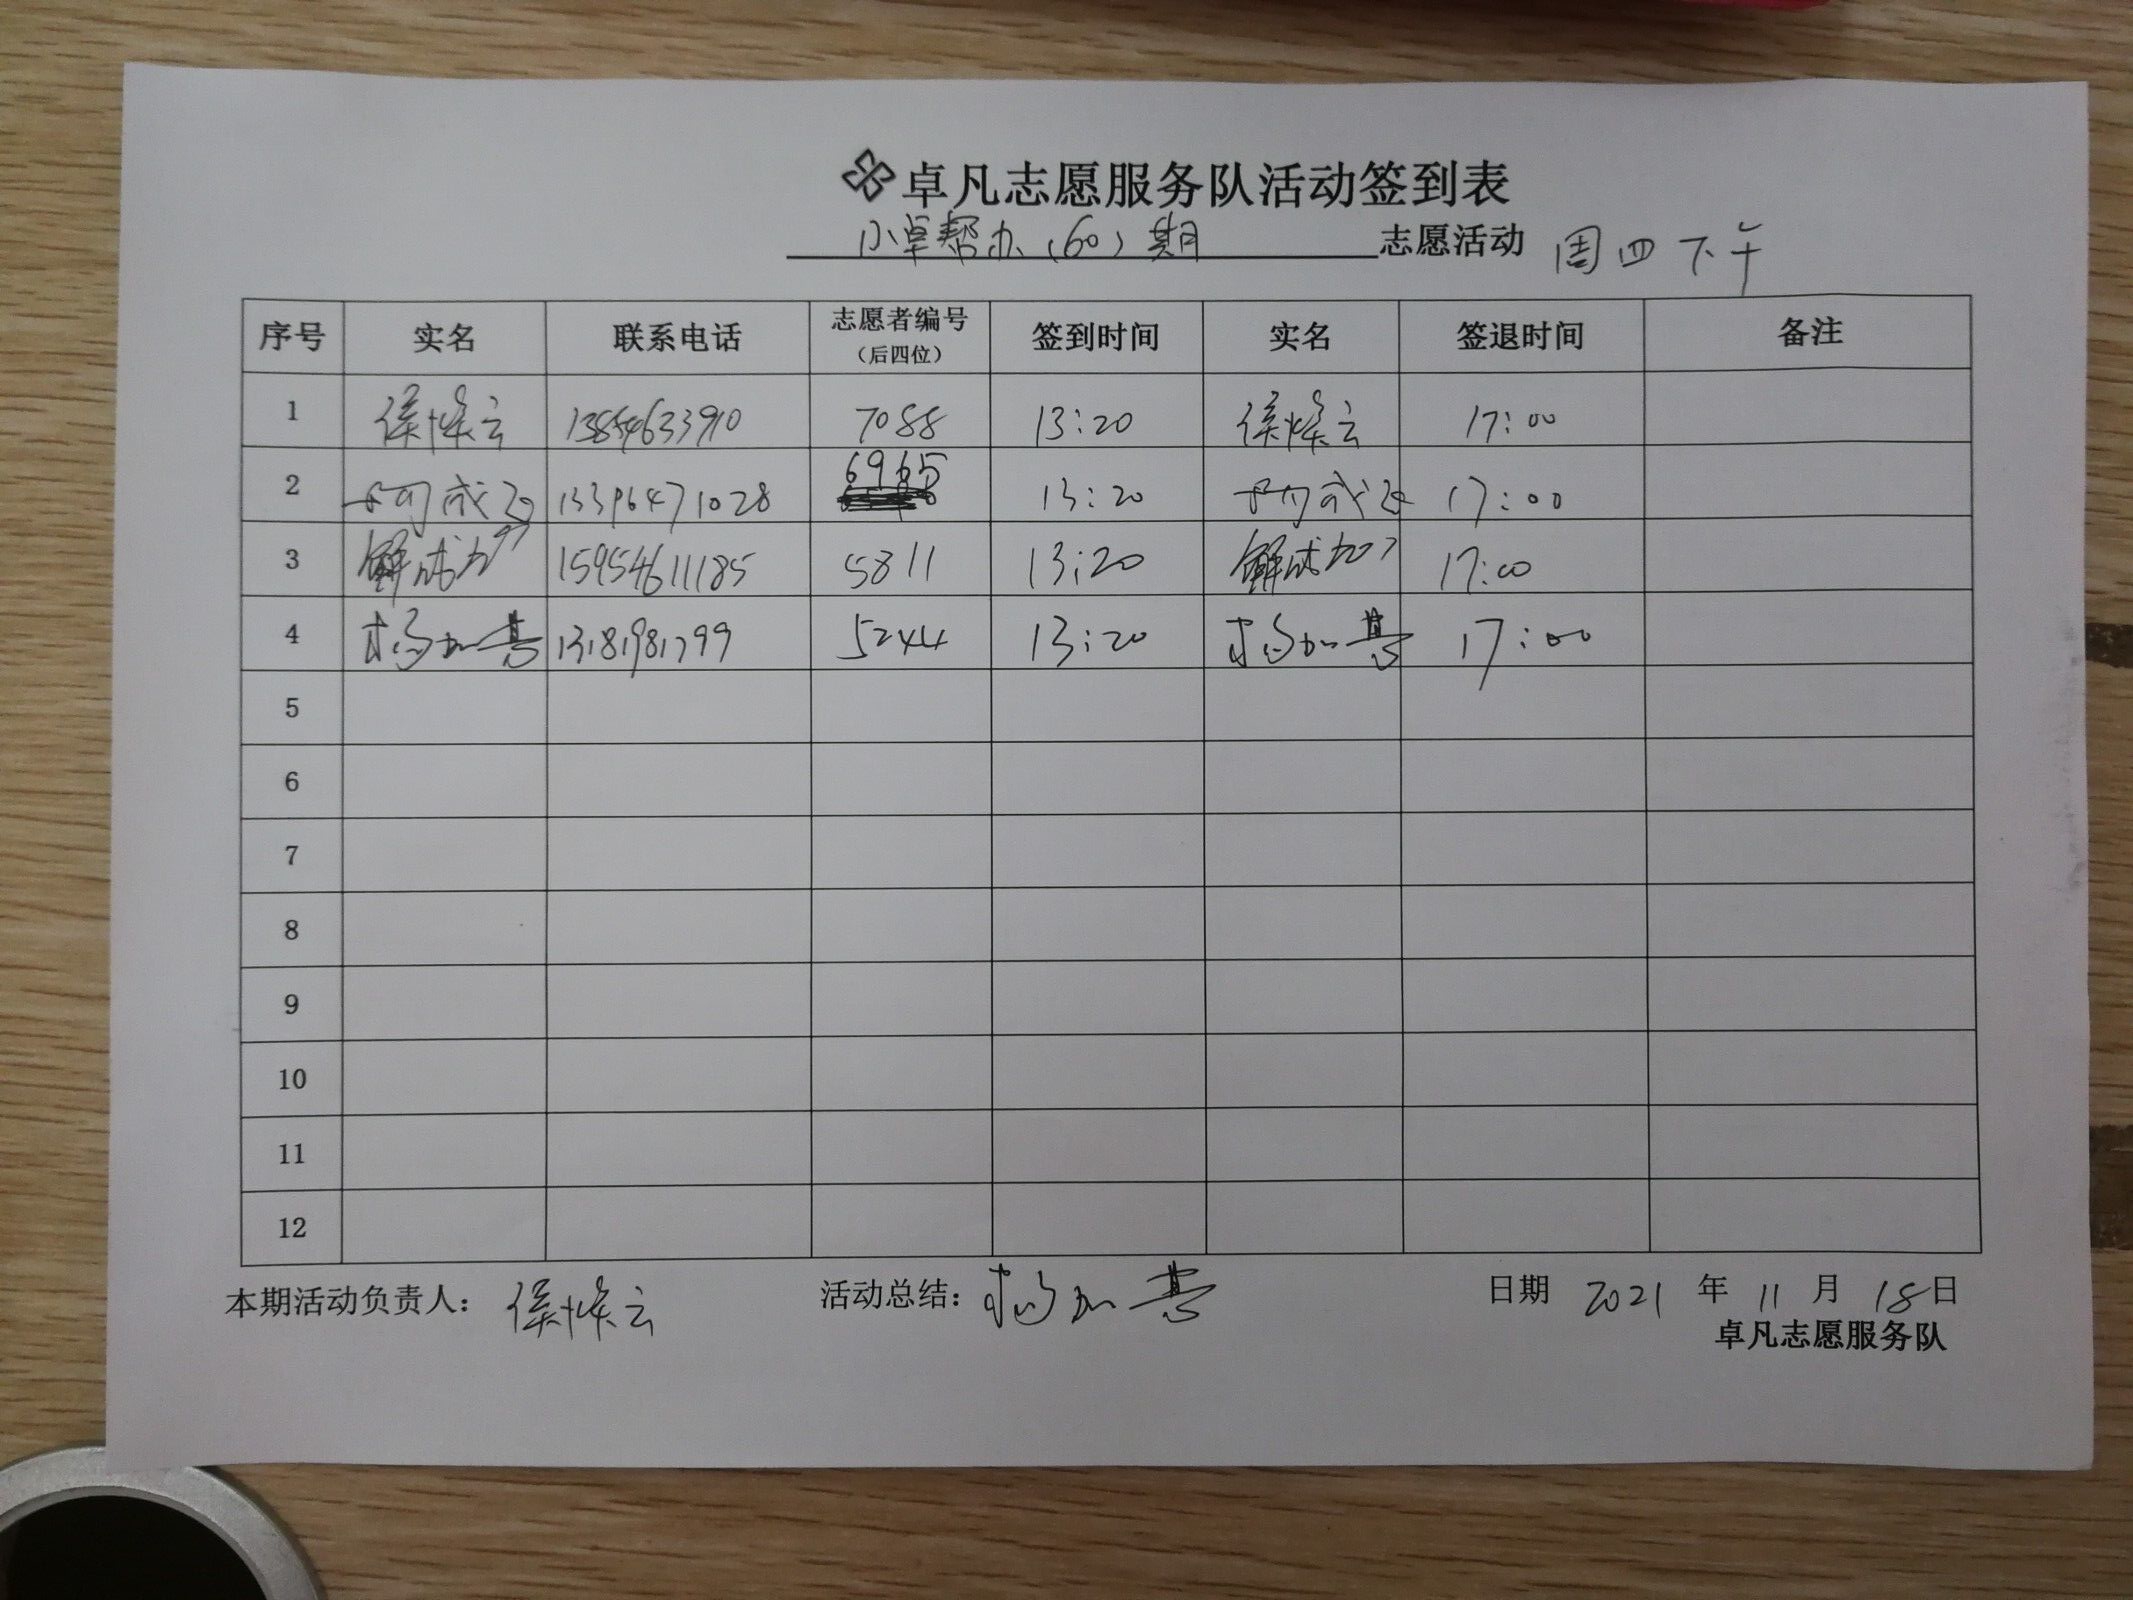 卓凡志愿服务队活动签到表
小卓帮办（60）期 志愿活动 周四下午
序号 实名 联系电话 志愿者编号（后四位） 签到时间 实名 签退时间 备注
1 侯焕云 13854633910 7088 13:20 侯焕云 17:00
2 13396471028 6965 13:20 17:00
3 解成加 15954611185 5811 13:20 解成加 17:00
4 杨加喜 13181981799 5244 13:20 杨加喜 17:00
5
6
7
8
9
10
11
12
本期活动负责人：侯焕云 活动总结：杨加喜 日期 2021 年 11 月 18 日
卓凡志愿服务队